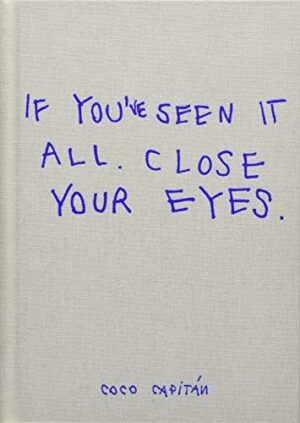 IF YOU'VE SEEN IT
ALL. CLOSE
YOUR EYES.
COCO CAPITÁN